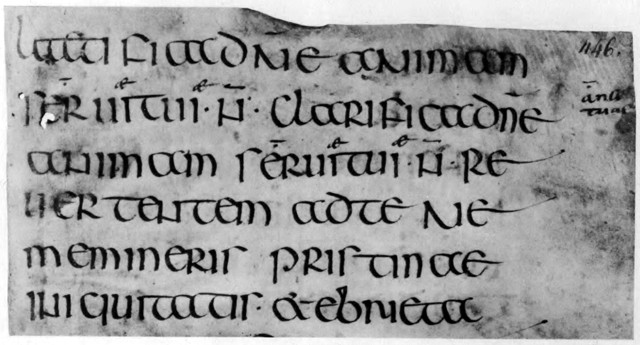 laetifica dn̄e animam
serui tui · n̄ · clarifica dn̄e
animam serui tui · n̄ · re
uertentem ad te ne
memineris pristinae
iniquitatis · & ebrieta